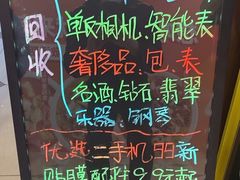 回收
单反相机.智能表
奢侈品.包.表
名酒.钻石.翡翠
乐器.钢琴
优选二手机99新
贴膜配件9.9元起